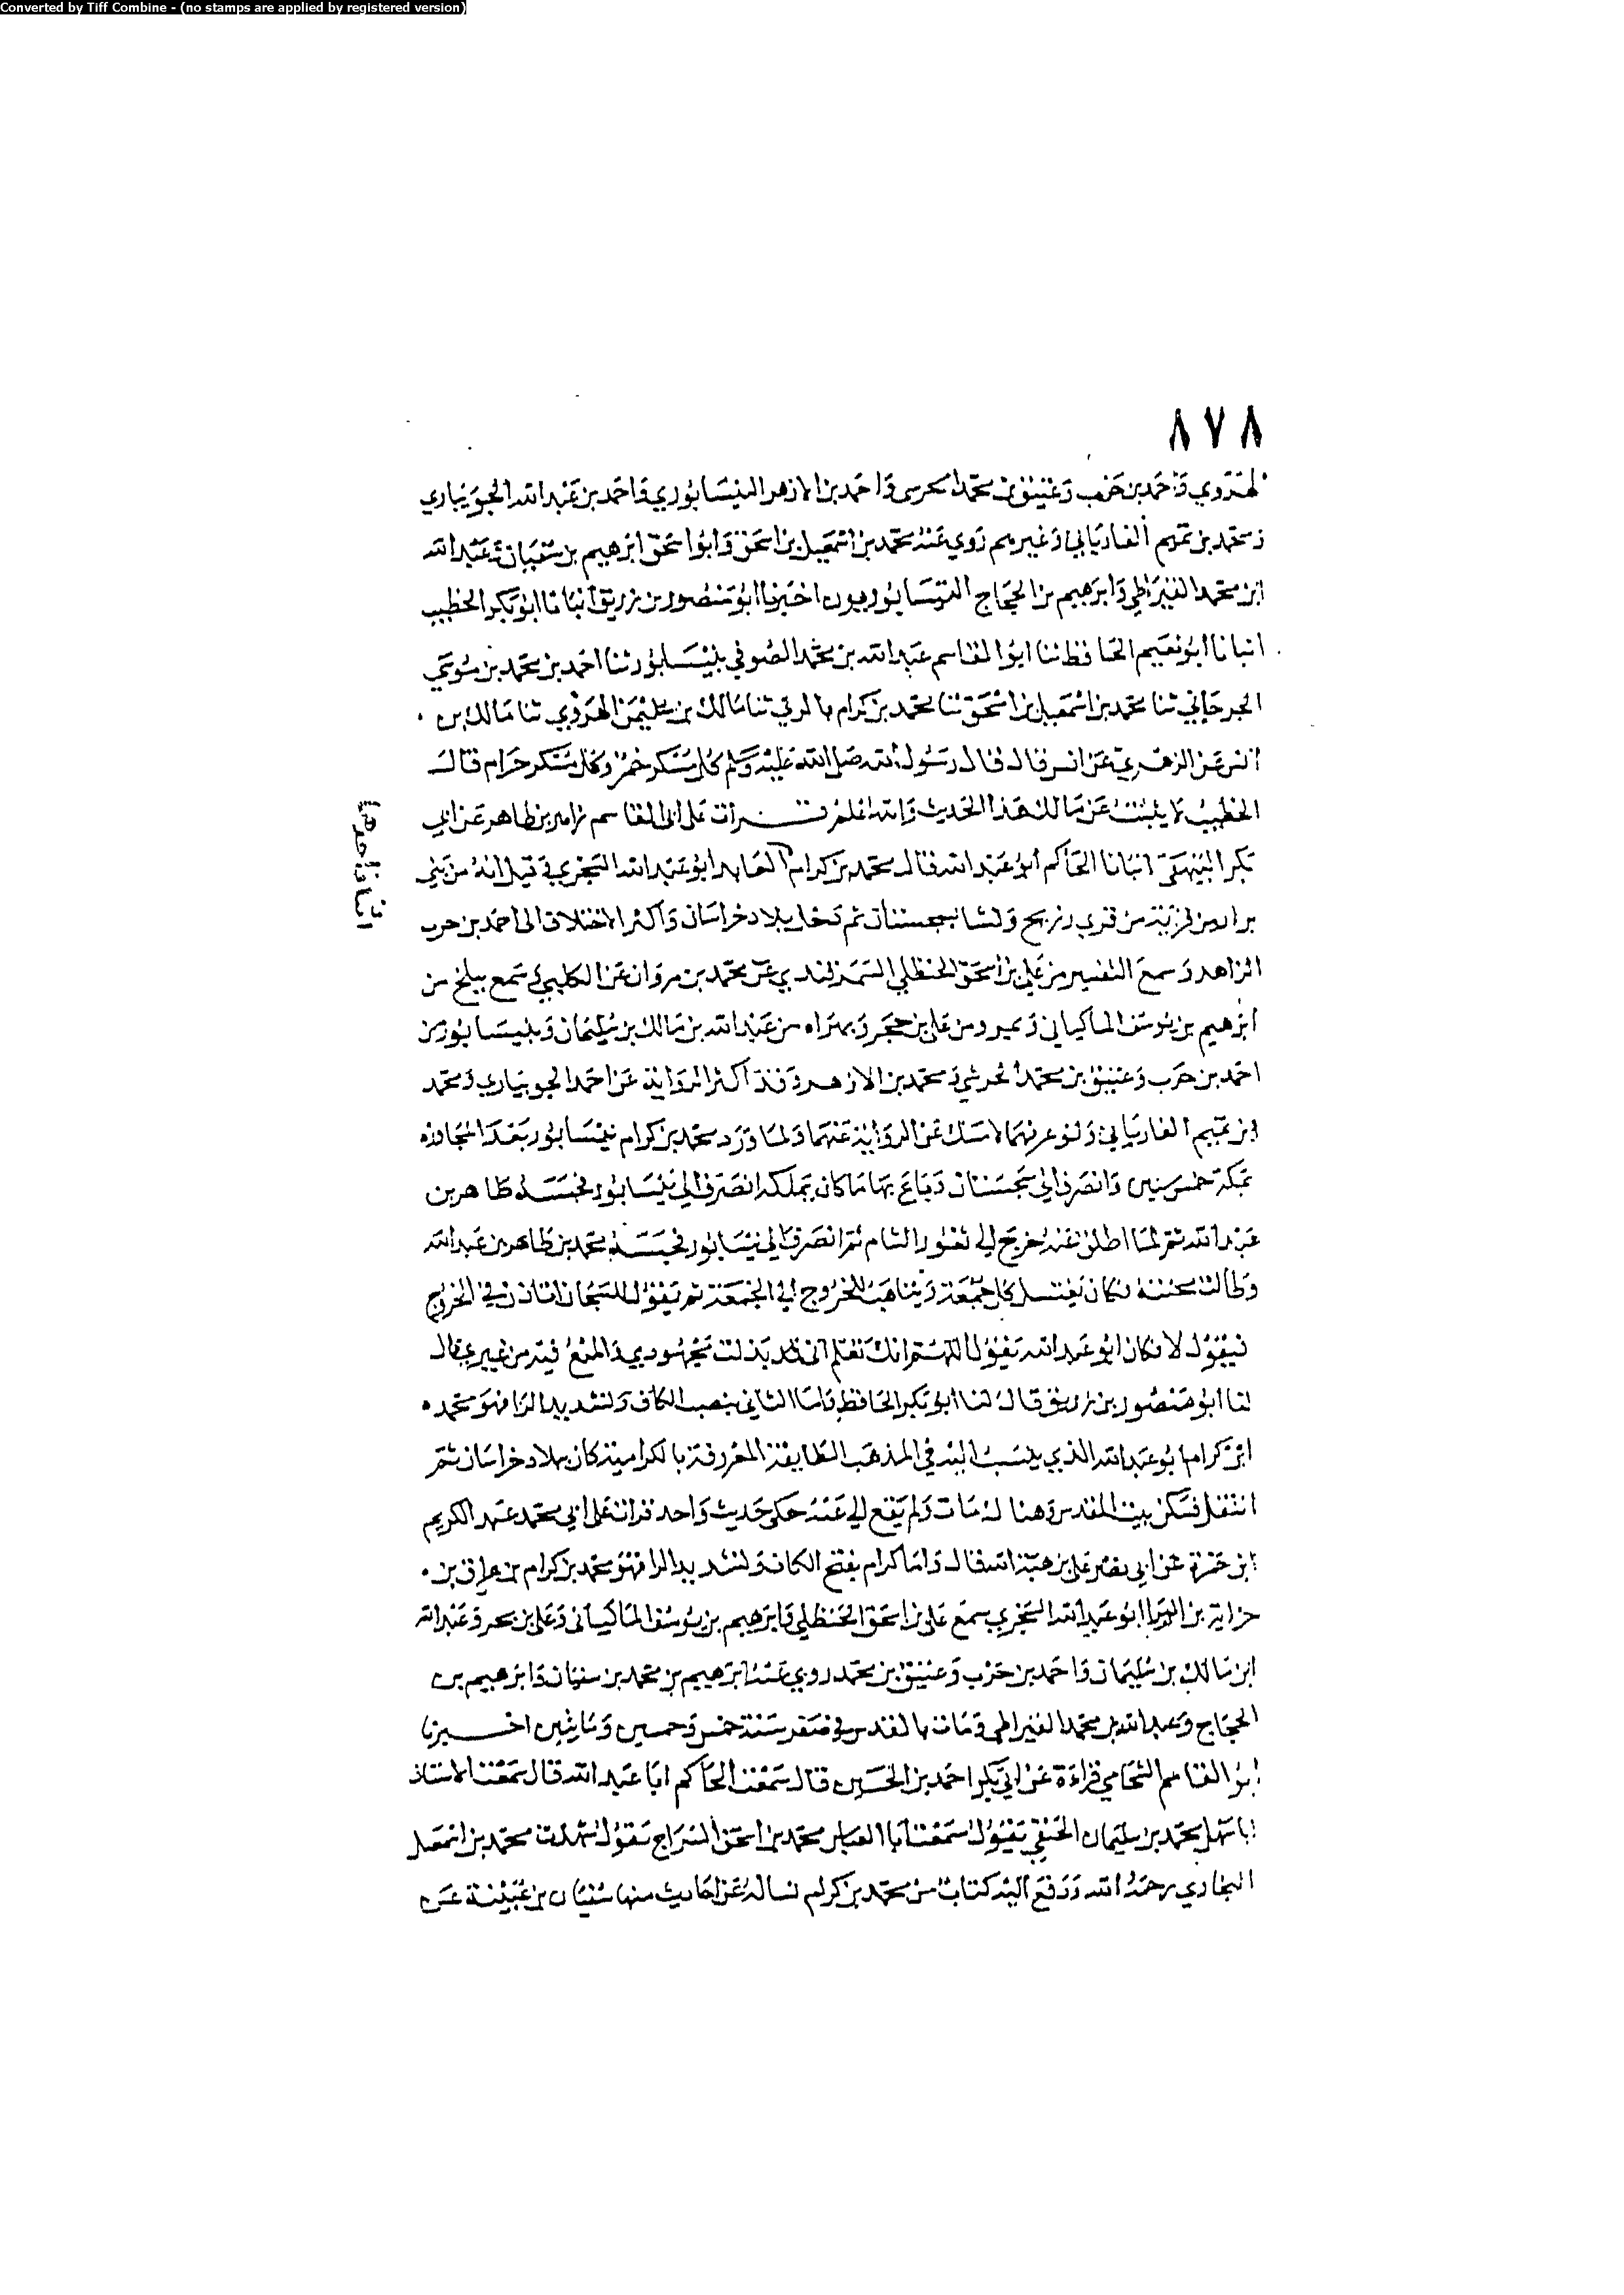 Converted by Tiff Combine - (no stamps are applied by registered version)
٨٧٨
الهروي واحمد بن حرب وعتيق بن محمد الحرسى واحمد بن الازهر النيسابوري واحمد بن عبد الله الجويباري
ومحمد بن تميم الفاريابي وغيرهم روي عنه محمد بن اسمعيل بن اسحق وابوا سحق ابرهيم بن سفيان وعبد الله
ابن محمد القيراطي وابرهيم بن الحجاج النيسابوريون اخبرنا ابو منصور بن زريق انبانا ابو بكر الخطيب
انبانا ابو نعيم الحافظ ثنا ابو القاسم عبد الله بن محمد الصوفي بنيسابور ثنا احمد بن محمد بن موسي
الجرجاني ثنا محمد بن اسمعيل بن اسحق ثنا محمد بن كرام ثنا مالك بن سليمن الهروي ثنا مالك بن
انس عن الزهري عن انس قال قال رسول الله صلى الله عليه وسلم كل مسكر خمر وكل مسكر حرام قال
الخطيب لا يثبت عن مالك هذا الحديث والله اعلم قرأت على ابى القاسم زاهر بن طاهر عن ابي
بكر البيهقي انبانا الحاكم ابو عبد الله قال محمد بن كرام العابد ابو عبد الله السجزي قيل انه من بني
من قرية من قري زرنج ونشا بسجستان ثم دخل بلاد خراسان واكثر الاختلاف الى احمد بن حرب
الزاهد وسمع التفسير من علي بن اسحق الحنظلي السمرقندي عن محمد بن مروان عن الكلبي وسمع ببلخ من
ابرهيم بن يوسف الماكياني وبمرو من على بن حجر وبهراه من عبد الله بن مالك بن سليمان وبنيسابور من
احمد بن حرب وعتيق بن محمد الحرشي ومحمد بن الازهر وقد اكثر الرواية عن احمد الجويباري ومحمد
ابن تميم الفاريابي ولو عرفهما لامسك عن الرواية عنهما ولما ورد محمد بن كرام نيسابور بعد المجاورة
بمكة خمس سنين وانصرف الي سجستان وباع بها ما كان يملكه انصرف الي نيسابور فحبسه طاهر بن
عبد الله ثم لما اطلق عنه خرج الي ثغور الشام ثم انصرف الي نيسابور فحبسه محمد بن طاهر بن عبد الله
وطالت محنته فكان يغتسل كل جمعة ويتاهب للخروج الي الجمعة ثم يقول للسجان اتاذن في الخروج
فيقول لا فكان ابو عبد الله يقول اللهم انك تعلم انى قد بذلت مجهودي والمنع فيه من غيري قال
لنا ابو منصور بن زريق قال لنا ابو بكر الحافظ واما الثاني بنصب الكاف وتشديد الرا فهو محمد
ابن كرام ابو عبد الله الذي ينسب اليه في المذهب الطايفة المعروفة بالكرامية كان ببلاد خراسان ثم
انتقل فسكن بيت المقدس وهناك مات ولم يقع الي عنه حديث واحد قرات على ابي محمد عبد الكريم
ابن حمزة عن ابي نصر على بن هبة الله قال واما كرام بفتح الكاف وتشديد الرا فهو محمد بن كرام بن عراق بن
حزابة بن البرا ابو عبد الله السجزي سمع على بن اسحق الحنظلي وابرهيم بن يوسف الماكيانى وعلى بن حجر وعبد الله
ابن مالك بن سليمان واحمد بن حرب وعتيق بن محمد روي عنه ابرهيم بن محمد بن سفيان وابرهيم بن
الحجاج وعبد الله بن محمد القيراطي ومات بالقدس في صفر سنة خمس وخمسين ومايتين اخبرنا
ابو القاسم الشحامي قراءة عن ابي بكر احمد بن الحسين قال سمعت الحاكم ابا عبد الله قال سمعت الاستاذ
ابا سهل محمد بن سليمان الحنفي يقول سمعت ابا العباس محمد بن اسحق السراج يقول شهدت محمد بن اسمعيل
البخاري رحمه الله ودفع اليه كتاب من محمد بن كرام لسأله عن احاديث منها سفيان بن عيينة عن